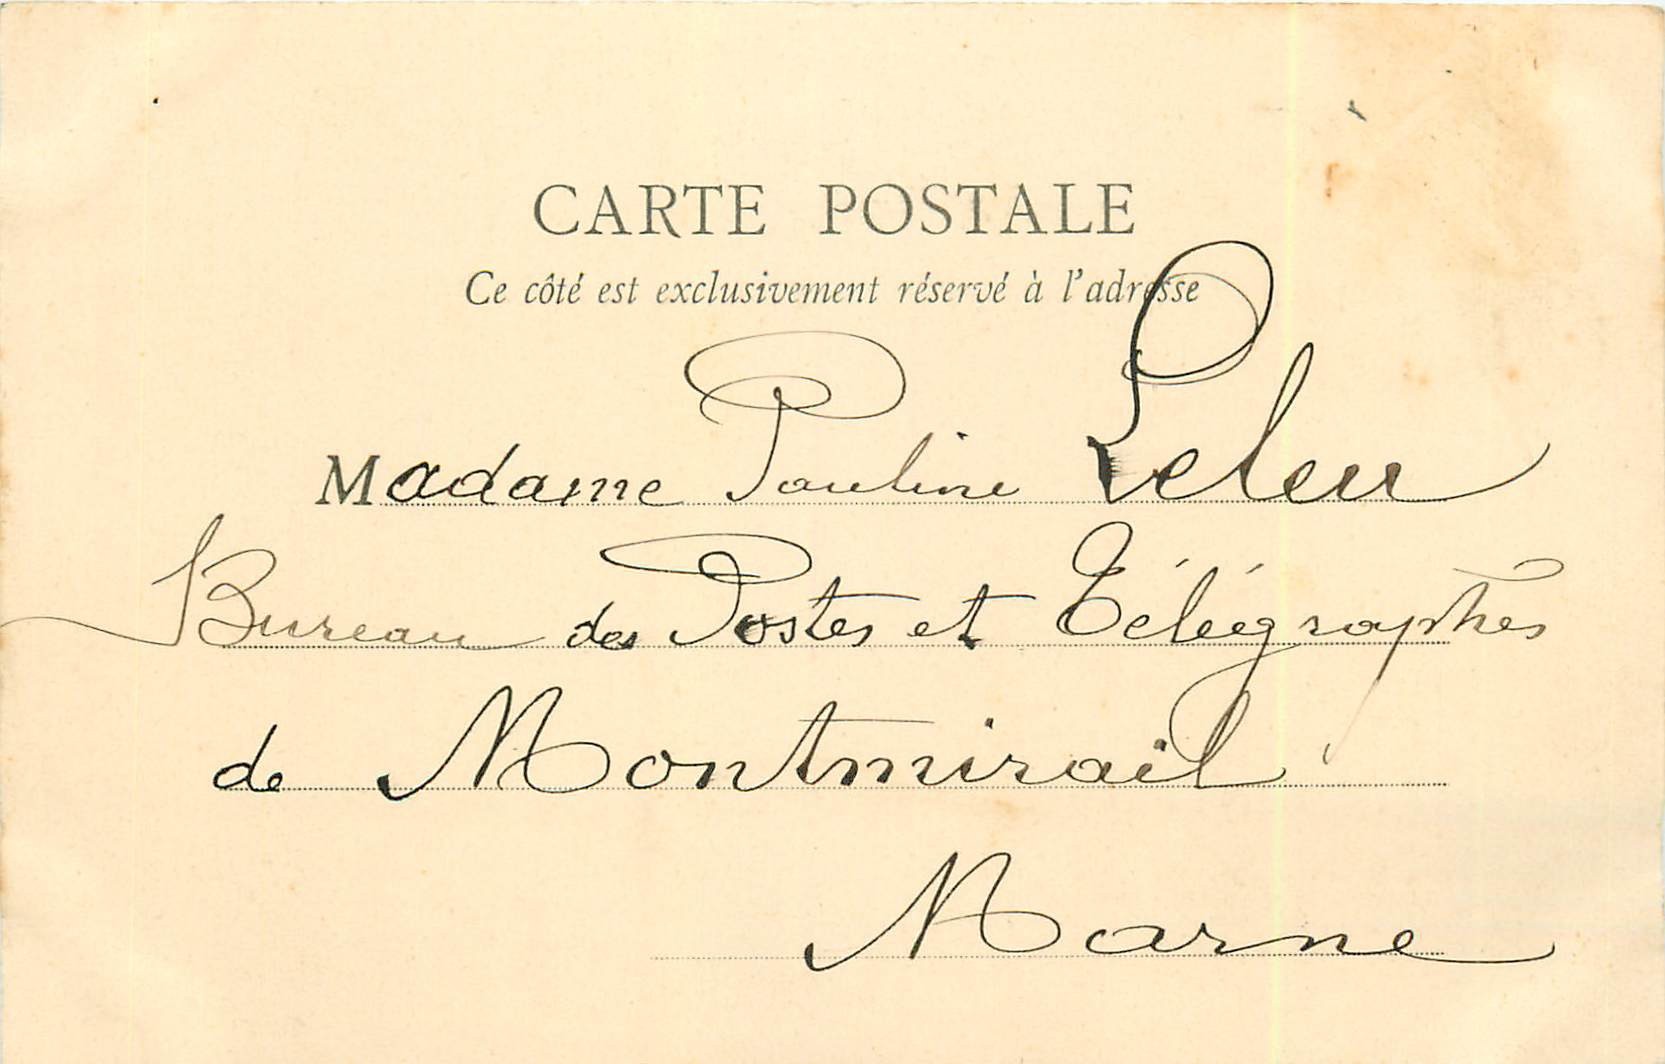 CARTE POSTALE
Ce côté est exclusivement réservé à l'adresse
Madame Pauline Leleu
Bureau des Postes et Télégraphes
de Montmirail
Marne